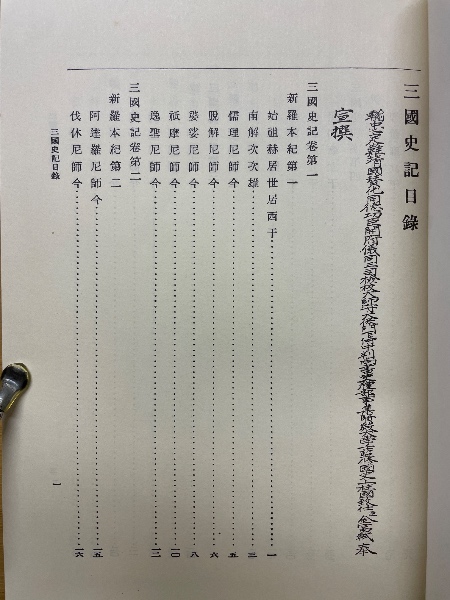 三國史記目錄
輸忠定難靖國贊化同德功臣開府儀同三司檢校太師守太保門下侍中判尙書吏禮部事集賢殿太學士監修國史上柱國致仕臣金富軾奉
宣撰
三國史記卷第一
新羅本紀第一
始祖赫居世居西干……一
南解次次雄……三
儒理尼師今……五
脫解尼師今……六
婆娑尼師今……八
祇摩尼師今……一〇
逸聖尼師今……一二
三國史記卷第二
新羅本紀第二
阿達羅尼師今……一五
伐休尼師今……一六
三國史記目錄
一